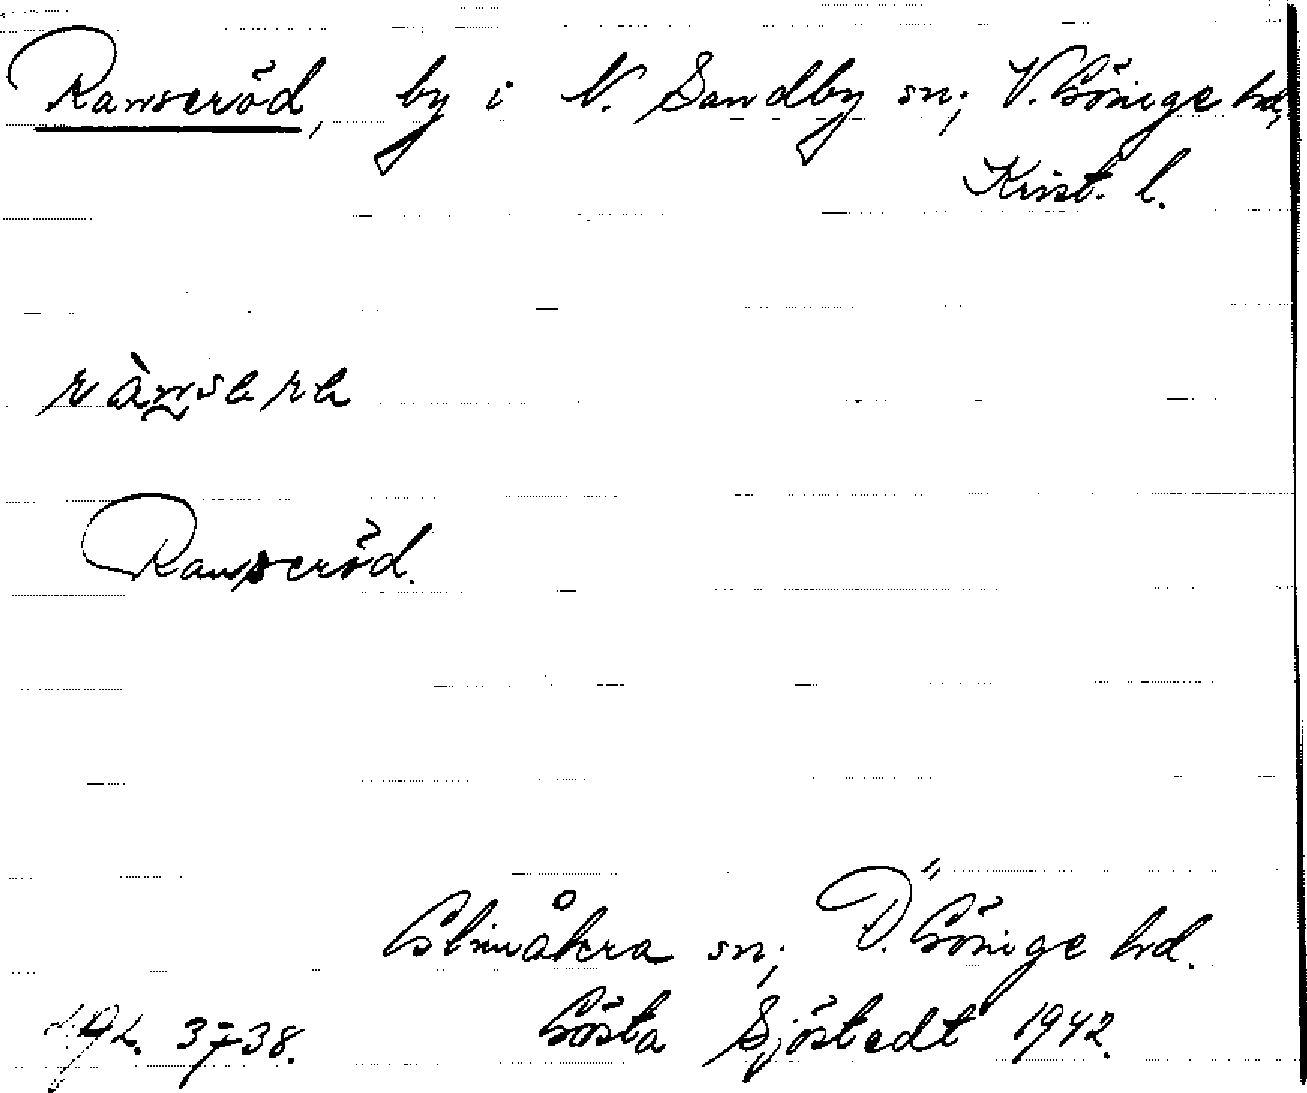 Ranseröd, by i N. Sandby sn; V. Göinge hd,
Krist. l.
rànsara
Ranseröd.
Glimåkra sn; Ö. Göinge hd.
37-38. Gösta Sjöstedt 1942.